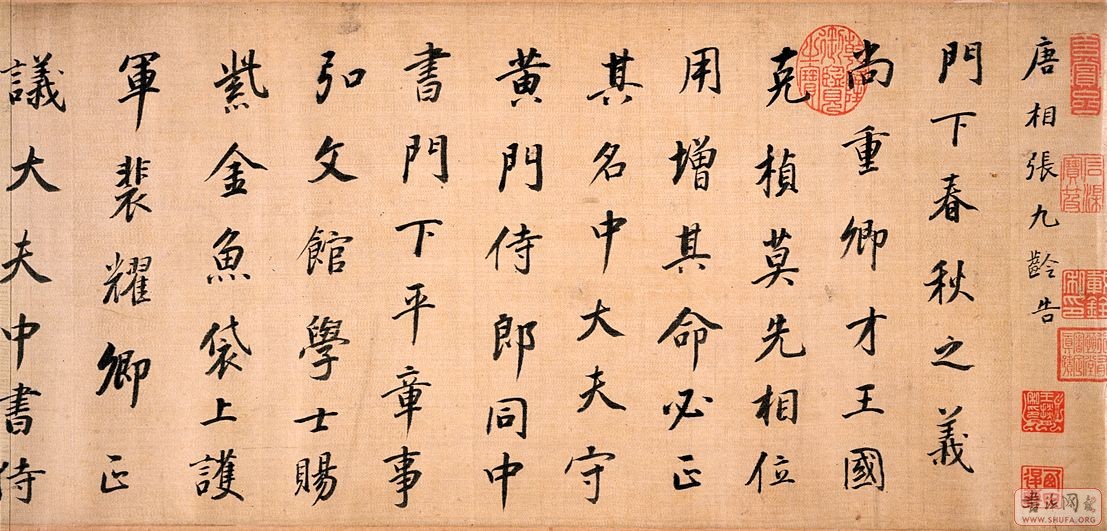 唐相張九齡告
門下春秋之義
尚重卿才王國
克楨莫先相位
用增其命必正
其名中大夫守
黄門侍郎同中
書門下平章事
弘文館學士賜
紫金魚袋上護
軍裴耀卿正
議大夫中書侍
乾隆御覽之寶
书法网
WWW.SHUFA.ORG